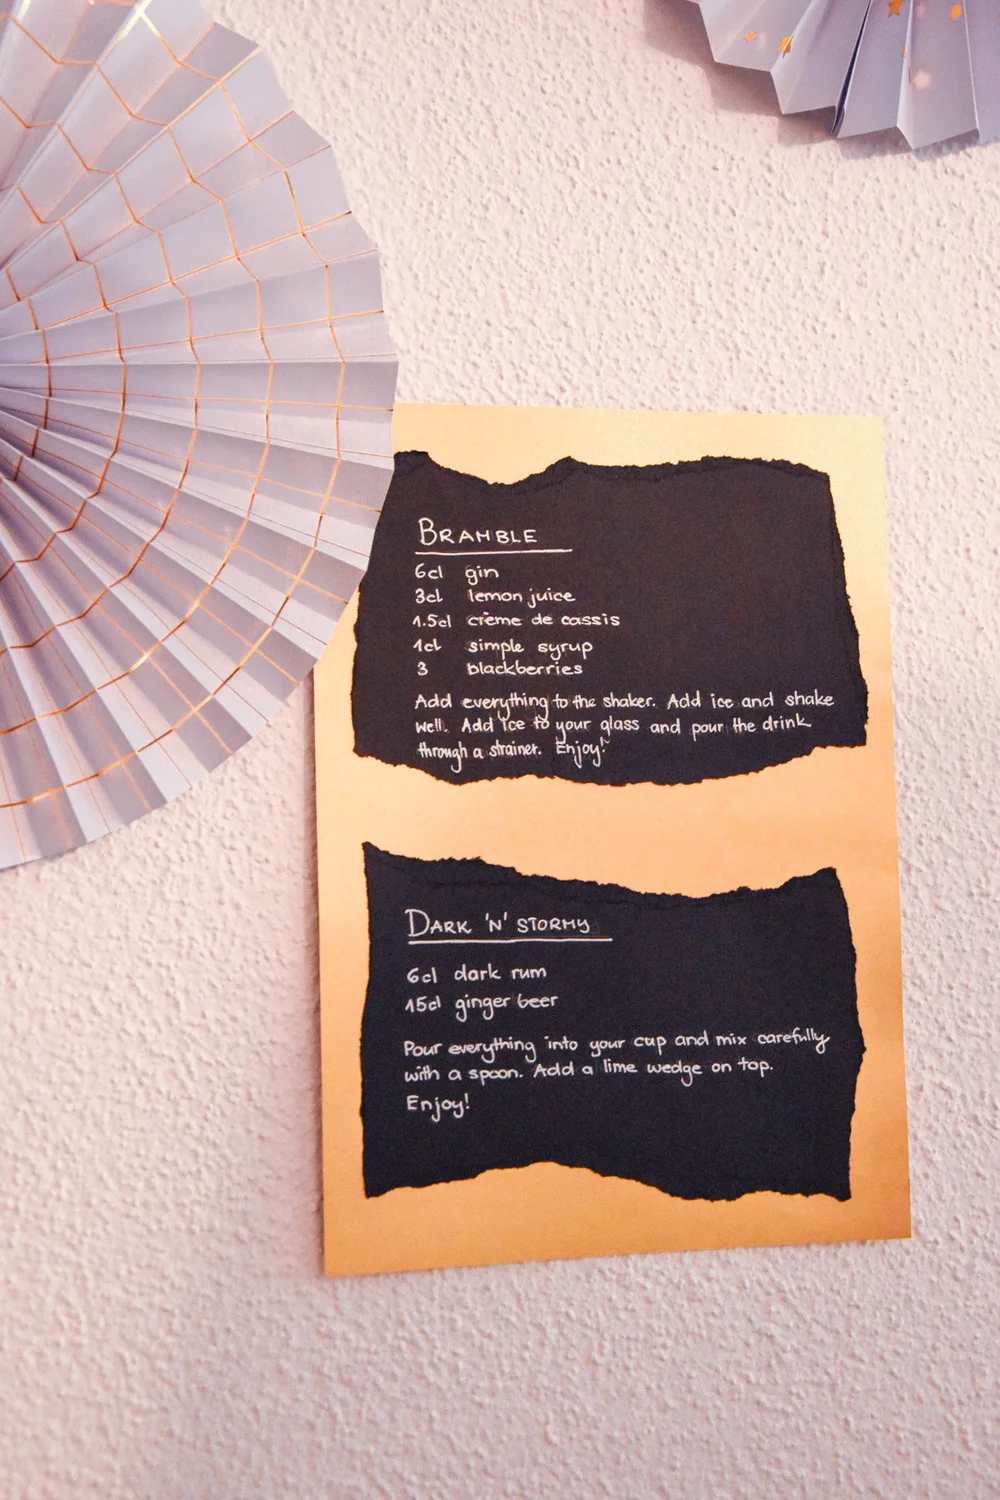 BRAMBLE
6cl gin
3cl lemon juice
1.5cl crème de cassis
1cl simple syrup
3 blackberries
Add everything to the shaker. Add ice and shake
well. Add ice to your glass and pour the drink
through a strainer. Enjoy!
DARK 'N' STORMY
6cl dark rum
15cl ginger beer
Pour everything into your cup and mix carefully
with a spoon. Add a lime wedge on top.
Enjoy!